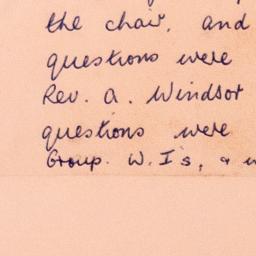 the chair, and
questions were
Rev. A. Windsor
questions were
Group. W.I's, &